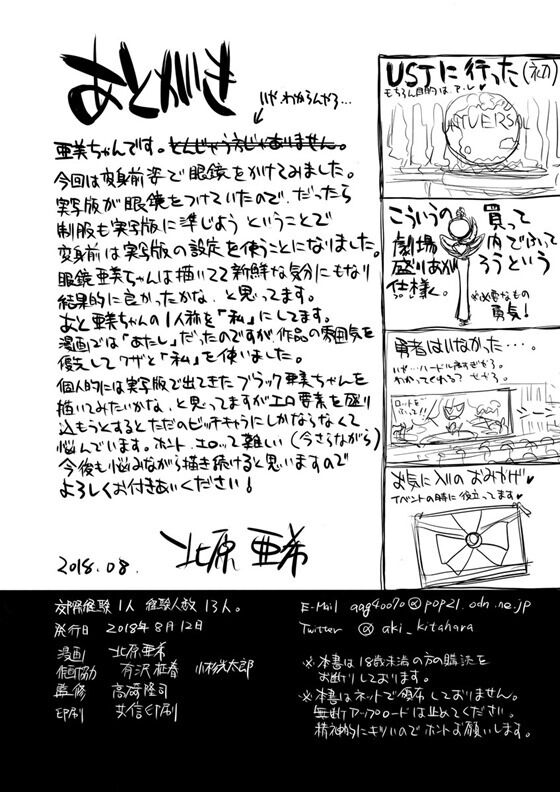 あとがき
いや わかるんやろ…
亜美ちゃんです。とんじゃうえじゃありません。
今回は変身前姿で眼鏡をかけてみました。
実写版が眼鏡をつけていたので、だったら
制服も実写版に準じよう ということで
変身前は実写版の設定を使うことになりました。
眼鏡亜美ちゃんは描いてて新鮮な気分にもなり
結果的に良かったかな、と思ってます。
あと亜美ちゃんの1人称を「私」にしてます。
漫画では「あたし」だったのですが作品の雰囲気を
優先してワザと「私」を使いました。
個人的には実写版で出てきたブラック亜美ちゃんを
描いてみたいかな、と思ってますがエロ要素を盛り
込もうとするとただのビッチキャラにしかならなくて
悩んでいます。ホント、エロって難しい(今さらながら)
今後も悩みながら描き続けると思いますので
よろしくお付きあいください!
2018.08.
北原亜希
USJに行った(初)
もちろん目的は
UNIVERSAL
こういうの買って
劇場内でふって
盛りあがろうという
仕様。
※必要なもの
勇気!
勇者はいなかった…。
いや…ハードル高すぎやろ。
わかってくれる?
お気に入りのおみやげ♥
イベントの時に役立ってます♥
交際経験1人 経験人数13人。
発行日 2018年8月12日
漫画 北原亜希
作画協力 有沢征春 小林洸太郎
監修 高崎隆司
印刷 共信印刷
E-Mail aqg40070@pop21.odn.ne.jp
Twitter @aki_kitahara
※本書は18歳未満の方の購読を
お断りしております。
※本書はネットで頒布しておりません。
無断アップロードは止めてください。
精神的にキツいのでホントお願いします。